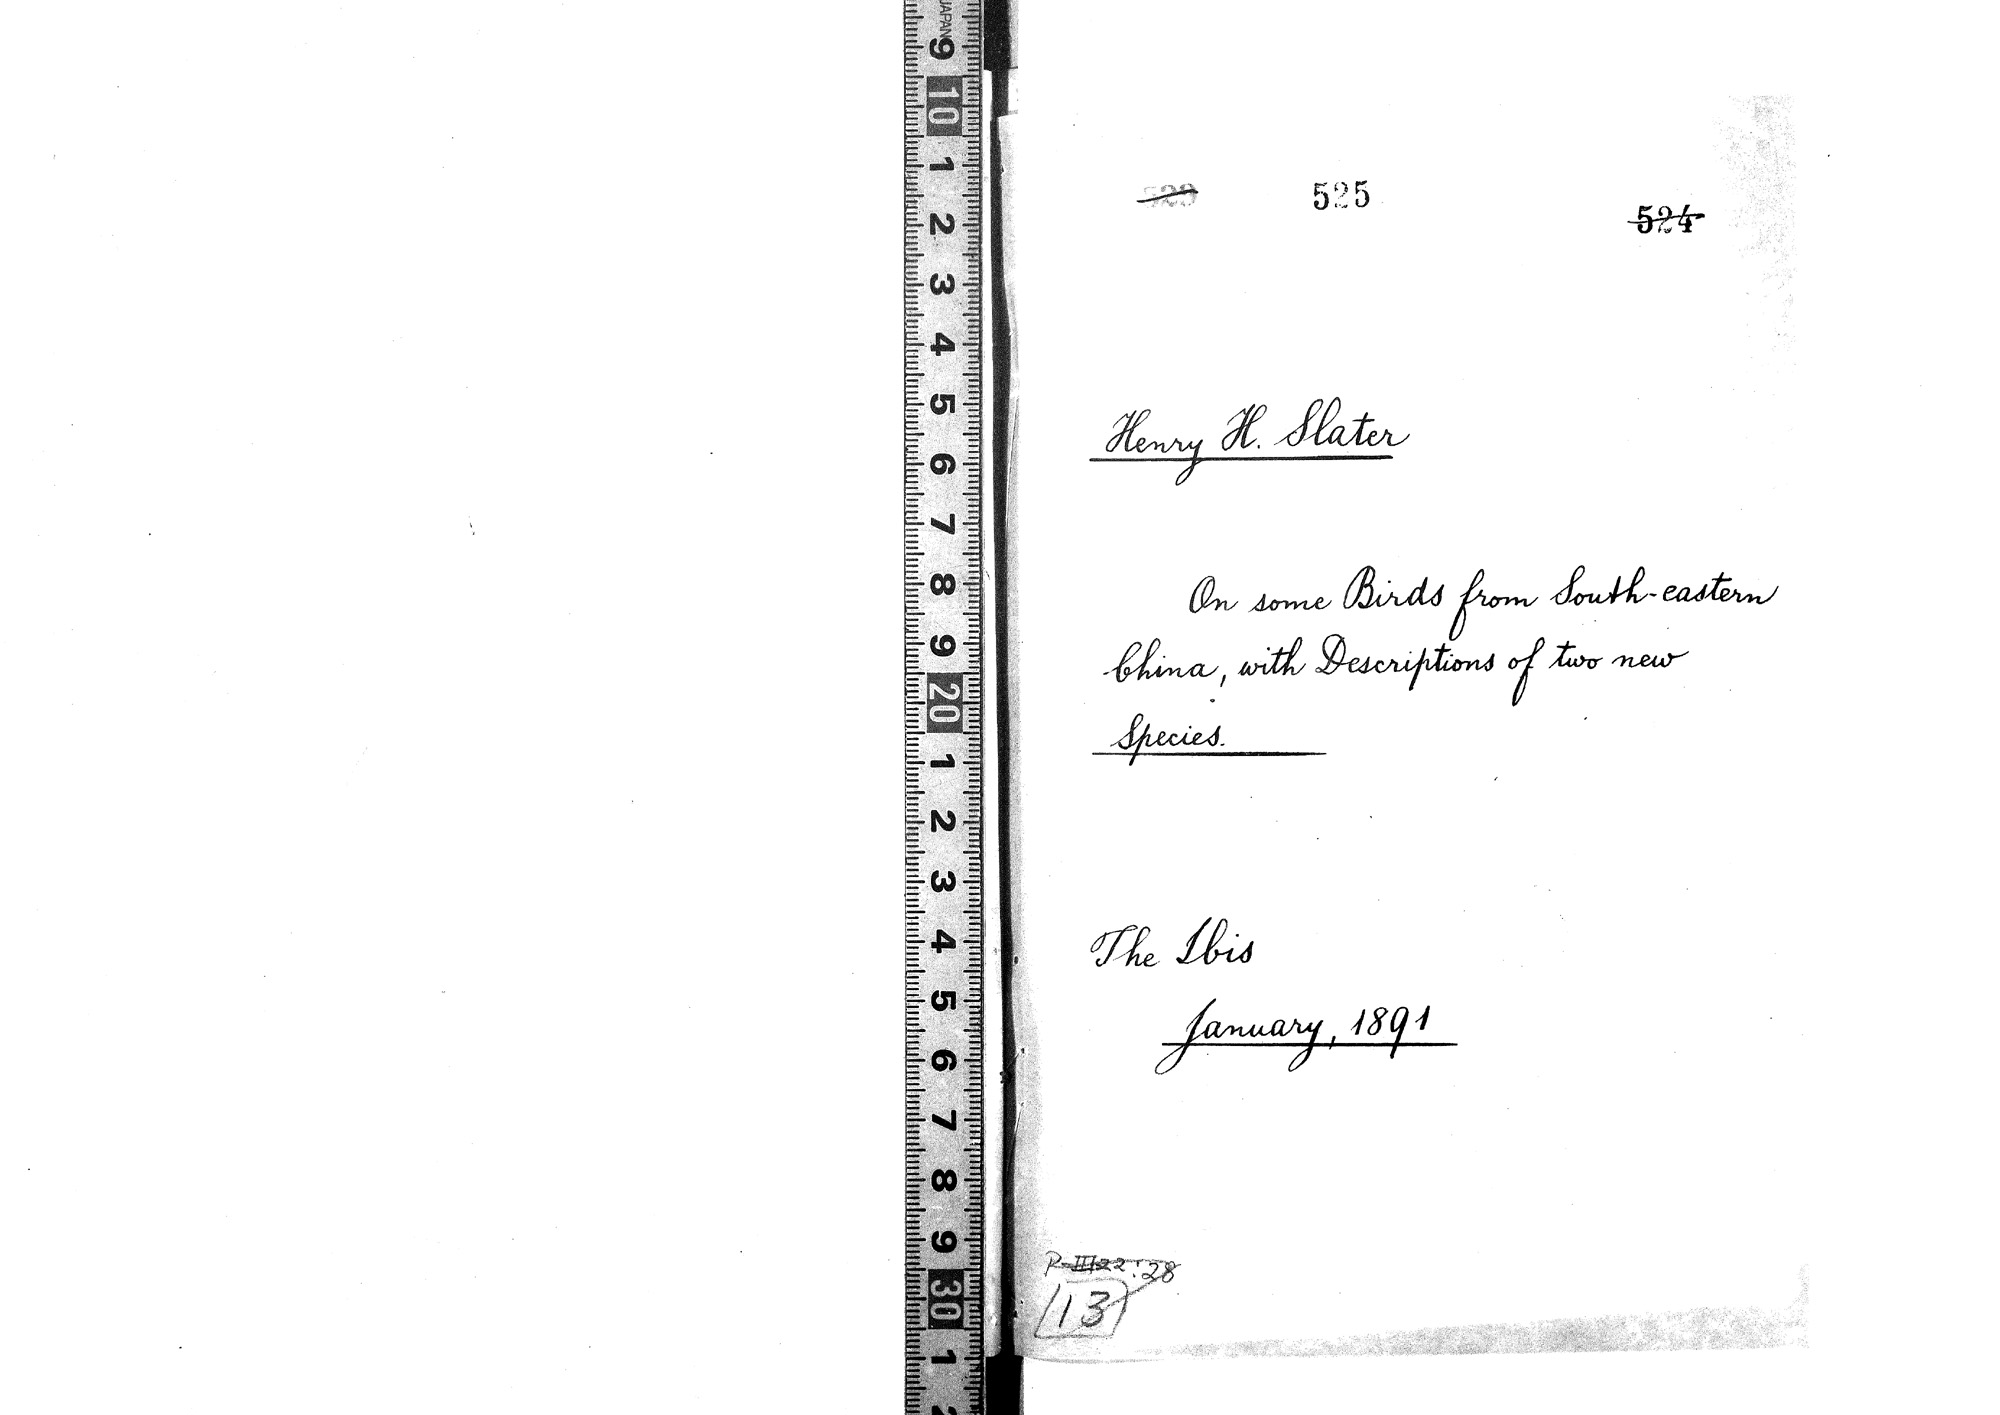 JAPAN
9
10
1
2
3
4
5
6
7
8
9
20
1
2
3
4
5
6
7
8
9
30
1
2
525
524
Henry H. Slater
On some Birds from South-eastern
China, with Descriptions of two new
Species.
The Ibis
January, 1891
28
13